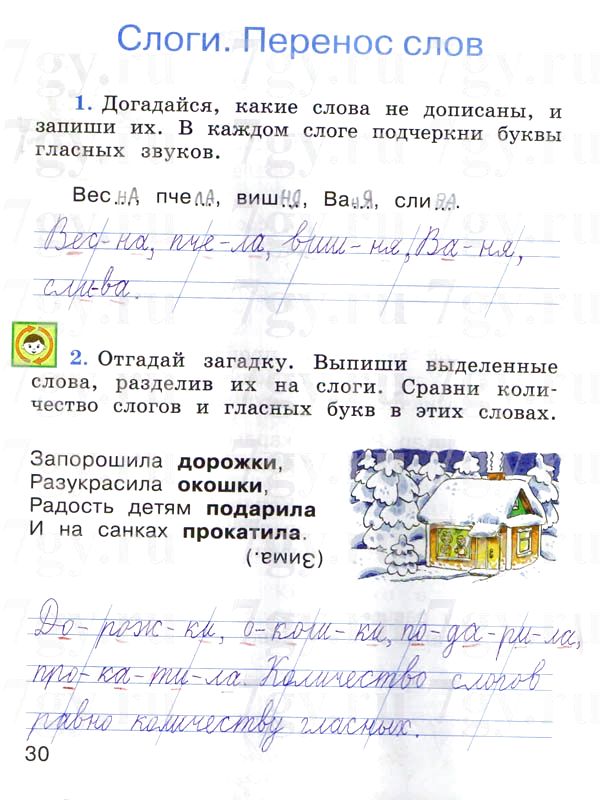 Слоги. Перенос слов
1. Догадайся, какие слова не дописаны, и
запиши их. В каждом слоге подчеркни буквы
гласных звуков.
Вес..на, пче..ла, виш..ня, Ва..ня, сли..ва.
Вес-на, пче-ла, виш-ня, Ва-ня,
сли-ва.
2. Отгадай загадку. Выпиши выделенные
слова, разделив их на слоги. Сравни коли-
чество слогов и гласных букв в этих словах.
Запорошила дорожки,
Разукрасила окошки,
Радость детям подарила
И на санках прокатила.
(Зима.)
До-рож-ки, о-кош-ки, по-да-ри-ла,
про-ка-ти-ла. Количество слогов
равно количеству гласных.
30
7gy.ru